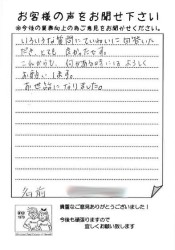 お客様の声をお聞せ下さい
※今後の業務向上の為ご意見をお聞かせください。
いろいろな質問にていねいに、お答えいた
だき、とても良かったです。
これからも、何かある時にはよろしく
お願いします。
お世話になりました。
名前
貴重なご意見ありがとうございました!
今後も頑張りますので
宜しくお願い致します